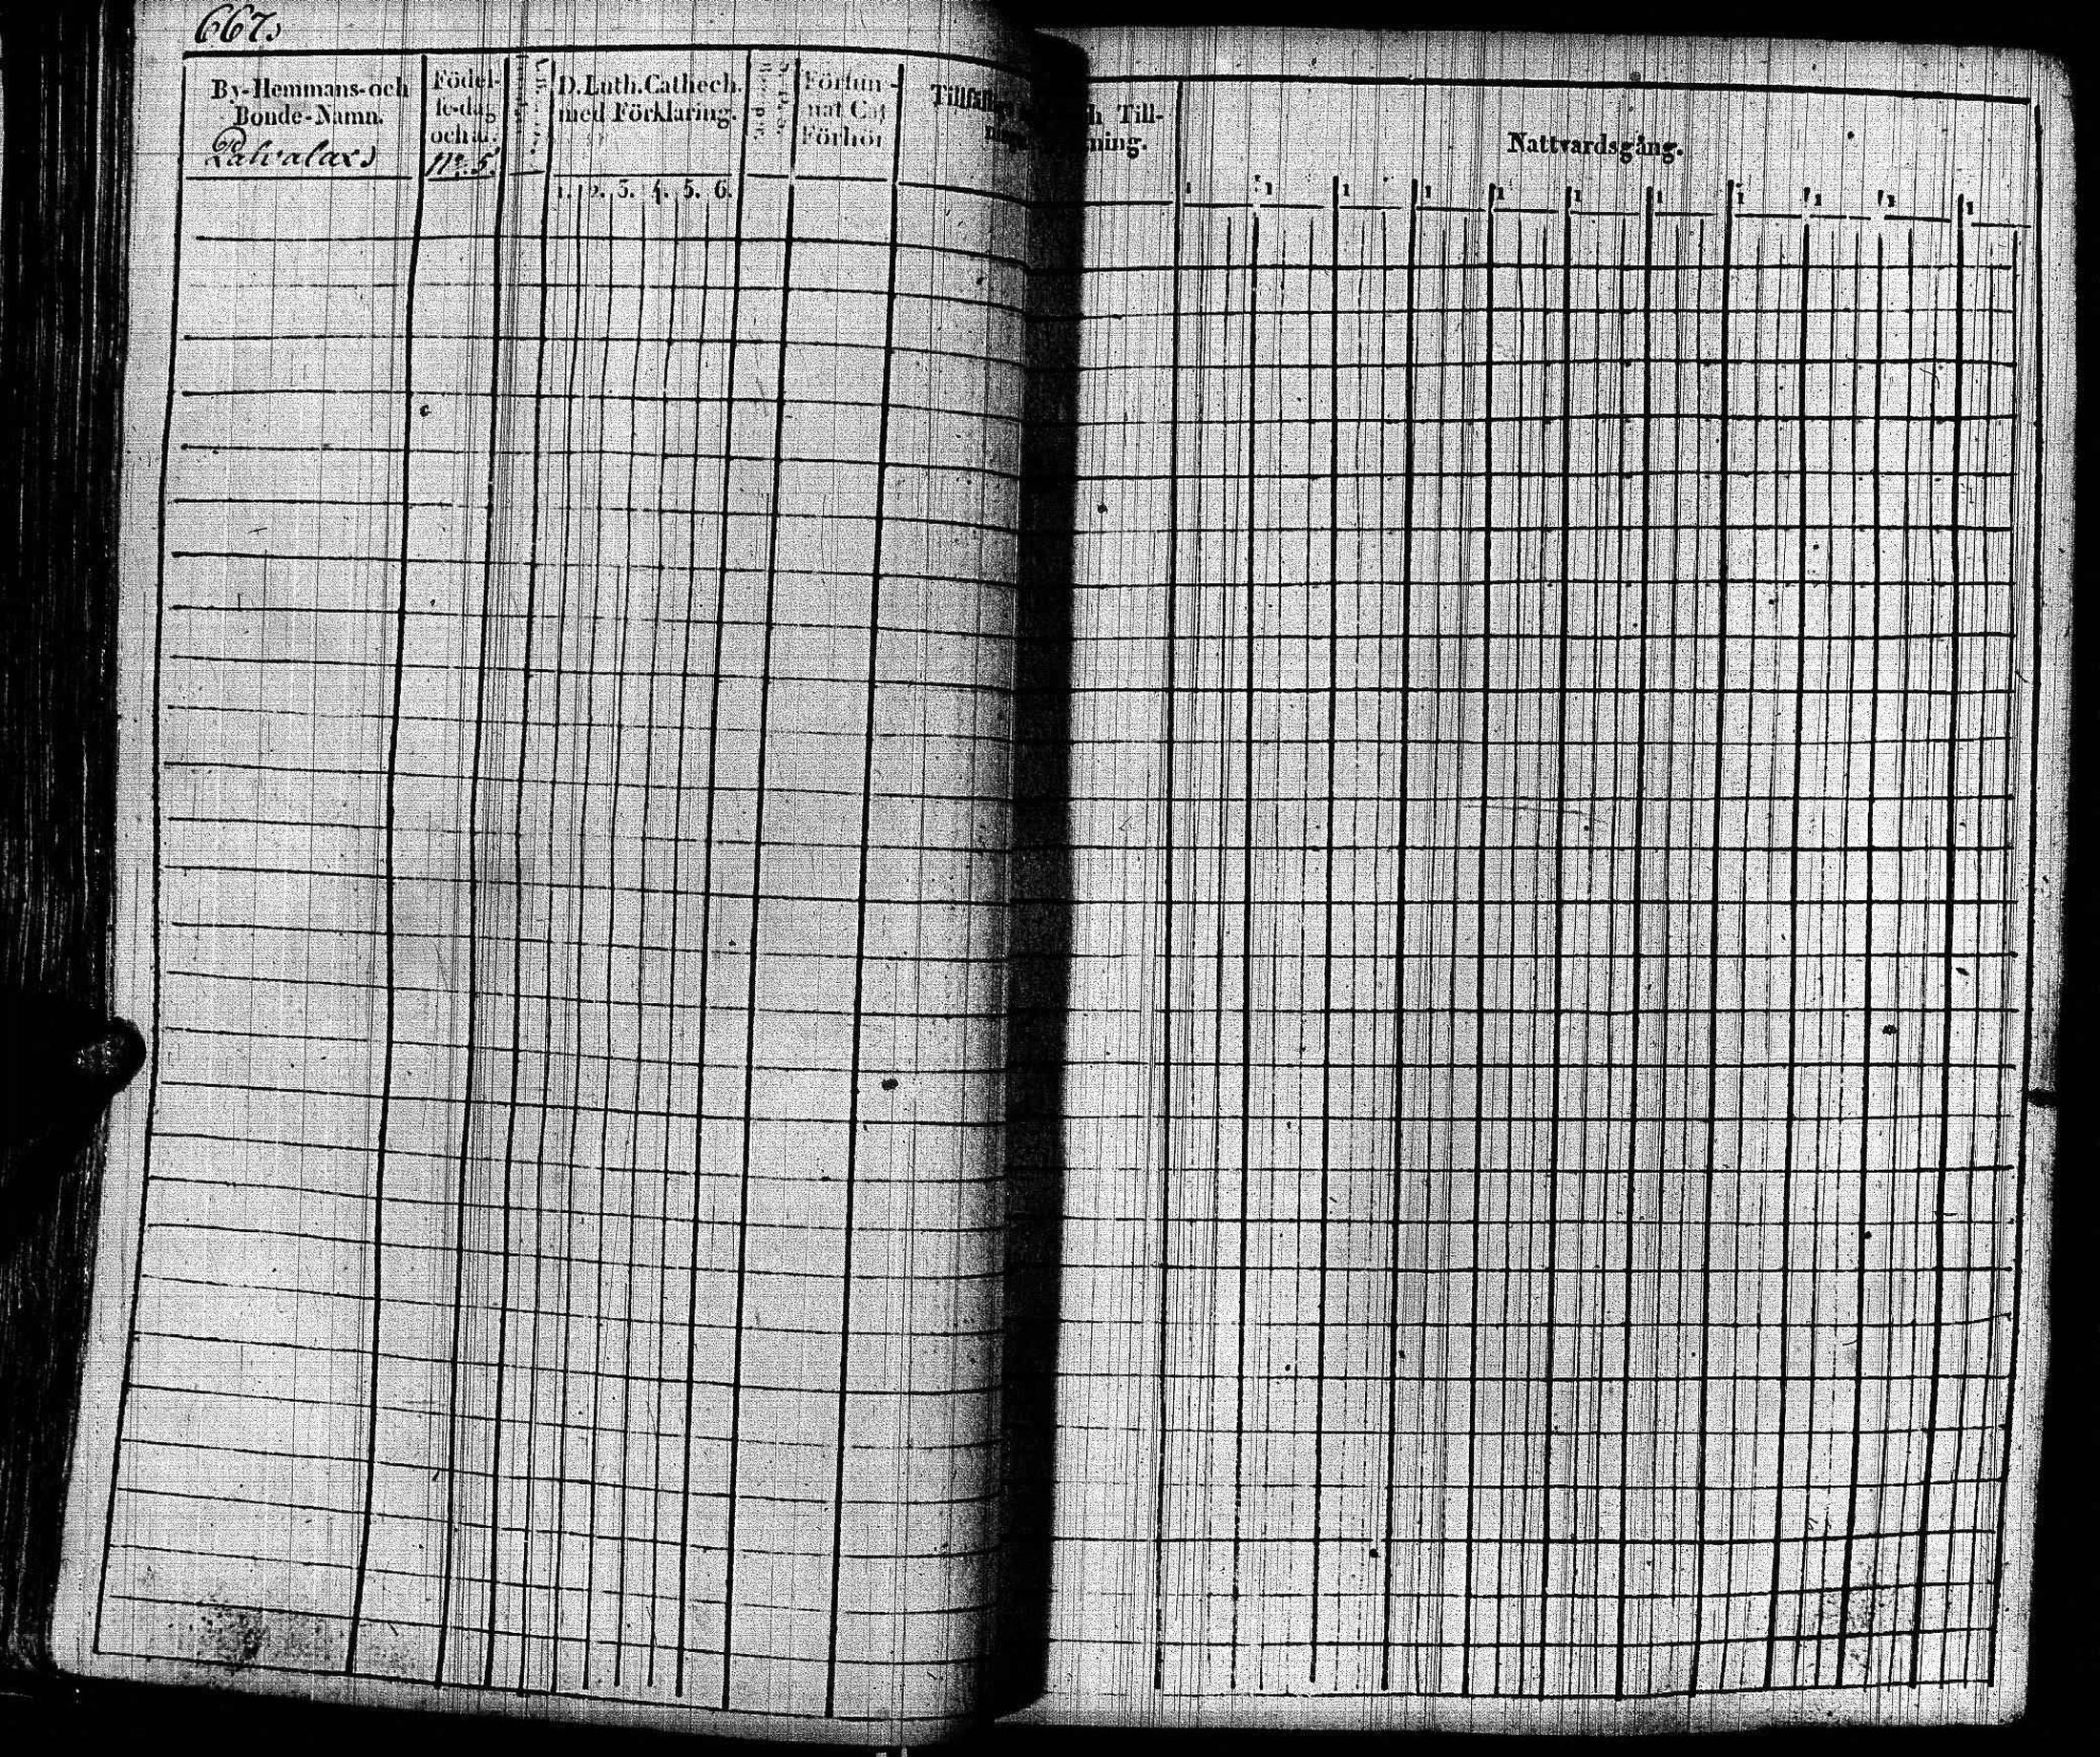 667.
By-Hemmans-och
Bonde-Namn.
Palvalax
Födel-
se-dag
och år.
No. 5.
D. Luth. Cathech.
med Förklaring.
1. 2. 3. 4. 5. 6.
Försum-
nat Cat
Förhör
Till-
ning.
Nattvardsgång.
1 1 1 1 1 1 1 1 1 1 1